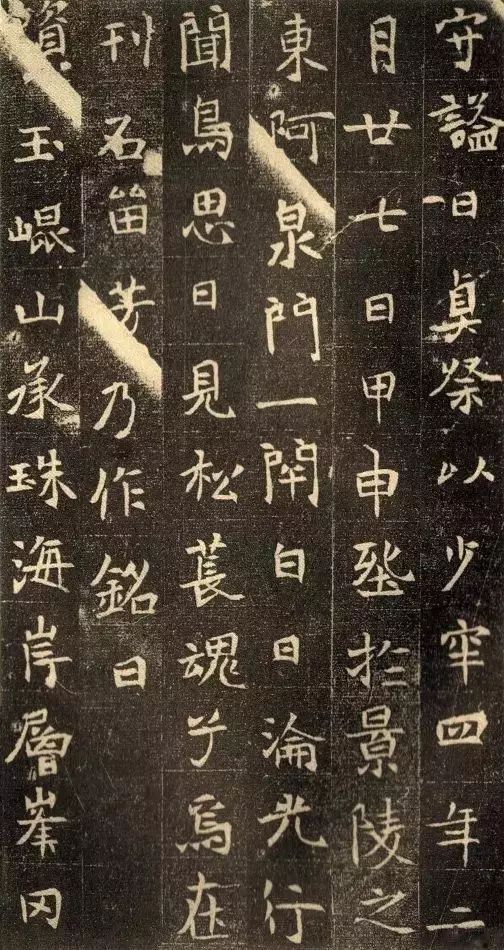 守謚曰真祭以少窂四年二
月廿七日甲申塟於景陵之
東阿泉門一閇白日淪光行
聞鳥思日見松萇魂兮焉在
刊石㽞芳乃作銘曰
資玉崐山承珠海岸層峯冈